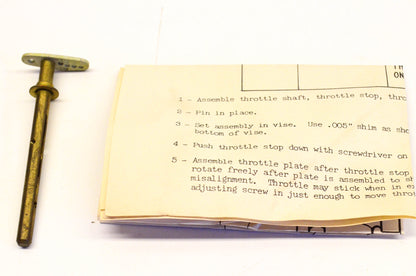 TH
ON
1 - Assemble throttle shaft, throttle stop, thro
2 - Pin in place.
3 - Set assembly in vise. Use .005" shim as sho
bottom of vise.
4 - Push throttle stop down with screwdriver on
5 - Assemble throttle plate after throttle stop
rotate freely after plate is assembled to sh
misalignment. Throttle may stick when in e
adjusting screw in just enough to move throt